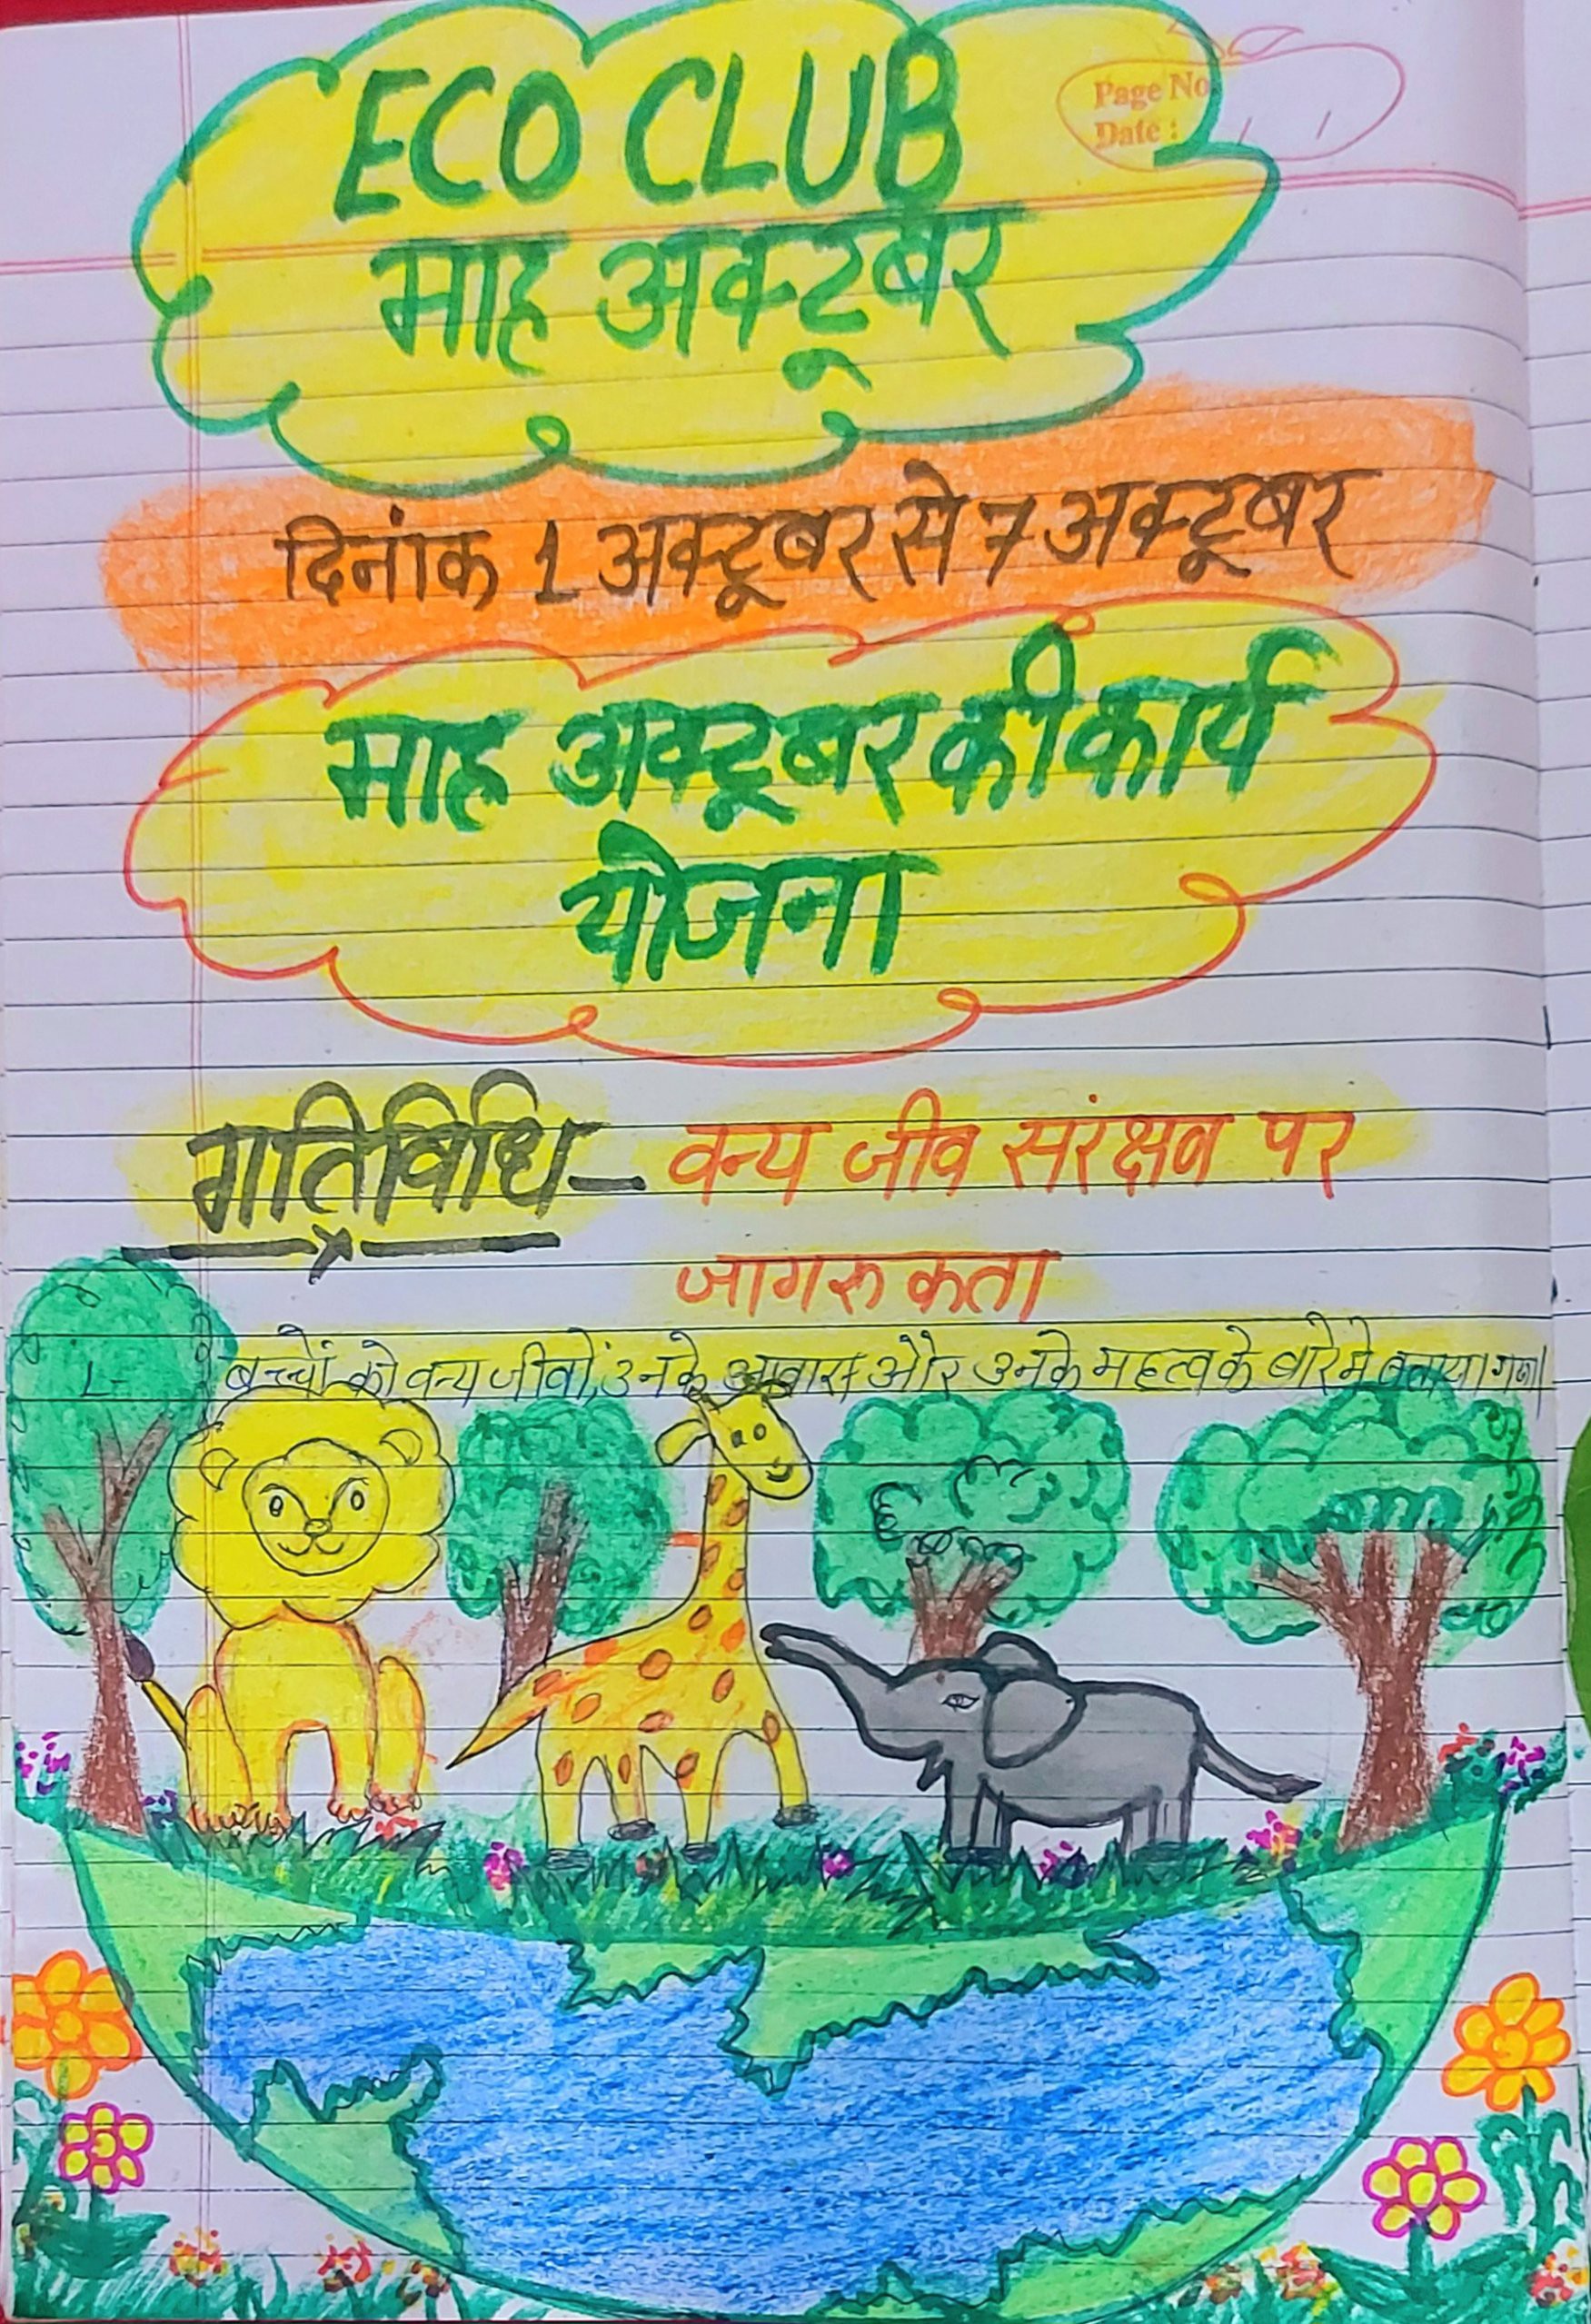 ECO CLUB
Page No.
Date : / /
माह अक्टूबर
दिनांक 1 अक्टूबर से 7 अक्टूबर
माह अक्टूबर की कार्य
योजना
गतिविधि – वन्य जीव सरंक्षण पर
जागरूकता
1- बच्चों को वन्य जीवों, उनके आवास और उनके महत्व के बारे मे बताया गया।